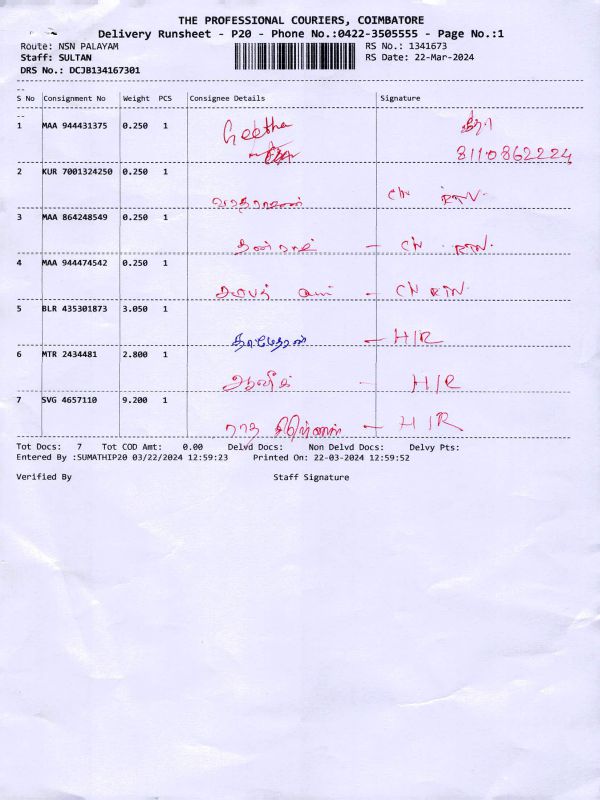 THE PROFESSIONAL COURIERS, COIMBATORE
Delivery Runsheet - P20 - Phone No.:0422-3505555 - Page No.:1
Route: NSN PALAYAM RS No.: 1341673
Staff: SULTAN RS Date: 22-Mar-2024
DRS No.: DCJB134167301
S No Consignment No Weight PCS Consignee Details Signature
1 MAA 944431375 0.250 1 Geetha
8110862224
2 KUR 7001324250 0.250 1 CN RTN.
3 MAA 864248549 0.250 1 - CN RTN.
4 MAA 944474542 0.250 1 - CN RTN.
5 BLR 435301873 3.050 1 - H/R
6 MTR 2434481 2.800 1 - H/R
7 SVG 4657110 9.200 1 - H/R
Tot Docs: 7 Tot COD Amt: 0.00 Delvd Docs: Non Delvd Docs: Delvy Pts:
Entered By :SUMATHIP20 03/22/2024 12:59:23 Printed On: 22-03-2024 12:59:52
Verified By Staff Signature